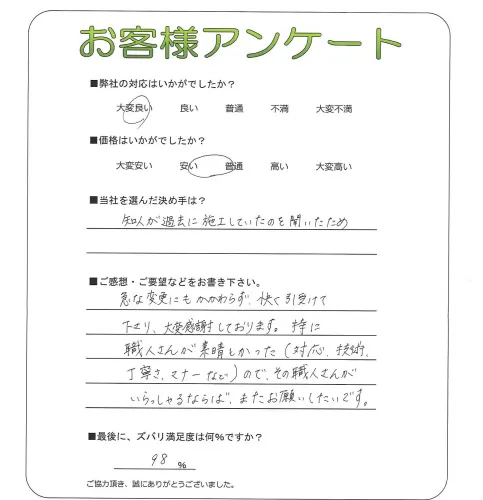 お客様アンケート
■弊社の対応はいかがでしたか？
大変良い 良い 普通 不満 大変不満
■価格はいかがでしたか？
大変安い 安い 普通 高い 大変高い
■当社を選んだ決め手は？
知人が過去に施工していたのを聞いたため
■ご感想・ご要望などをお書き下さい。
急な変更にもかかわらず、快く引受けて
下さり、大変感謝しております。特に
職人さんが素晴しかった（対応、技術、
丁寧さ、マナーなど）ので、その職人さんが
いらっしゃるならば、またお願いしたいです。
■最後に、ズバリ満足度は何％ですか？
98 ％
ご協力頂き、誠にありがとうございました。